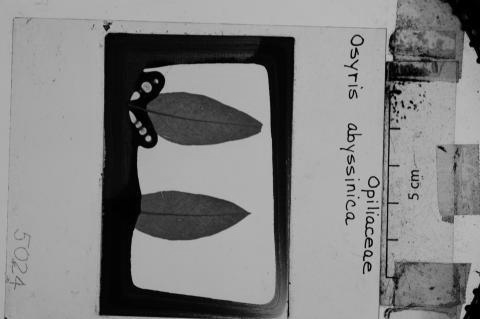 Osyris abyssinica
Opiliaceae
5 cm
5024